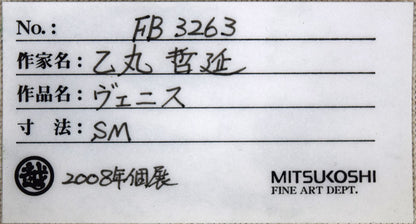 No.: FB 3263
作家名：乙丸 哲延
作品名：ヴェニス
寸 法：SM
越 2008年個展
MITSUKOSHI
FINE ART DEPT.